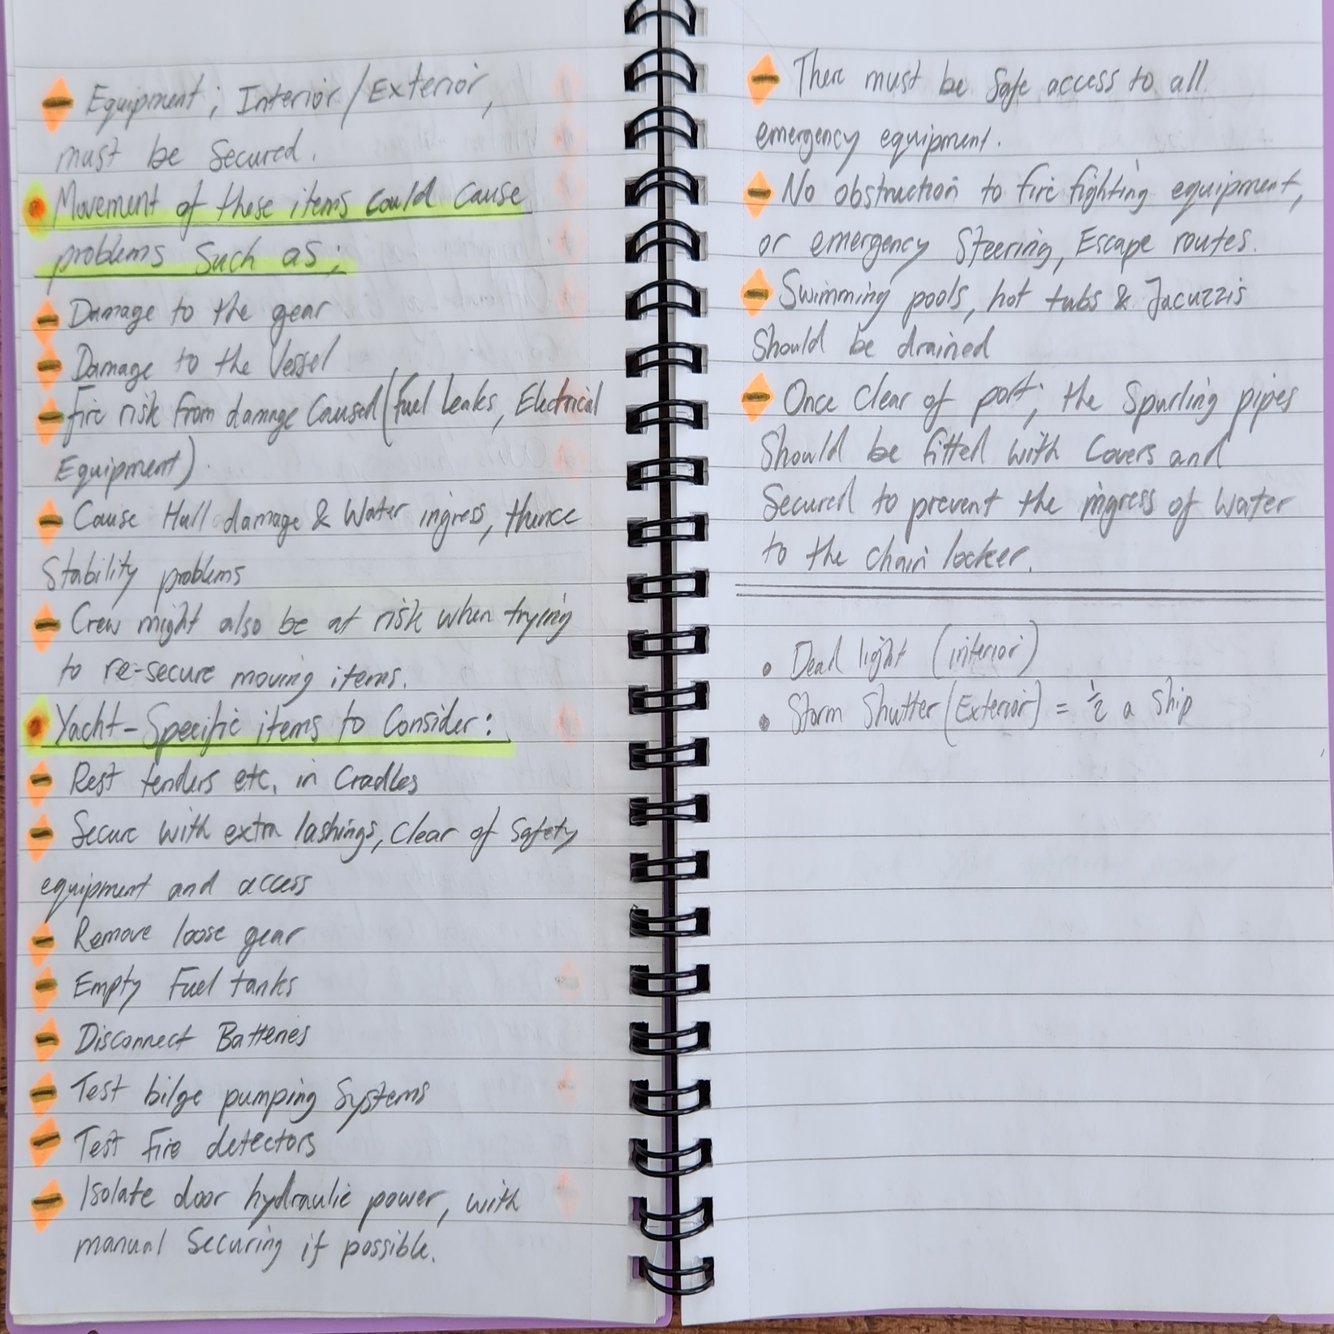 - Equipment; Interior/Exterior,
must be Secured.
• Movement of these items could cause
problems Such as;
- Damage to the gear
- Damage to the Vessel
- Fire risk from damage Caused (fuel leaks, Electrical
Equipment).
- Cause Hull damage & Water ingress, thence
Stability problems
- Crew might also be at risk when trying
to re-secure moving items.
• Yacht-Specific items to Consider:
- Rest tenders etc. in Cradles
- Secure with extra lashings, clear of Safety
equipment and access
- Remove loose gear
- Empty Fuel tanks
- Disconnect Batteries
- Test bilge pumping Systems
- Test Fire detectors
- Isolate door hydraulic power, with
manual Securing if possible.
- There must be Safe access to all
emergency equipment.
- No obstruction to fire fighting equipment,
or emergency Steering, Escape routes.
- Swimming pools, hot tubs & Jacuzzis
Should be drained
- Once Clear of port; the Spurling pipes
Should be fitted with Covers and
Secured to prevent the ingress of Water
to the chain locker.
• Dead light (interior)
• Storm Shutter (Exterior) = 1/2 a Ship